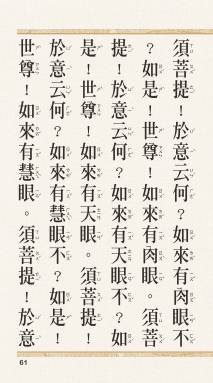 須菩提！於意云何？如來有肉眼不
？如是！世尊！如來有肉眼。須菩
提！於意云何？如來有天眼不？如
是！世尊！如來有天眼。須菩提！
於意云何？如來有慧眼不？如是！
世尊！如來有慧眼。須菩提！於意
61